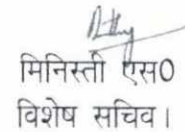 मिनिस्ती एस0
विशेष सचिव।